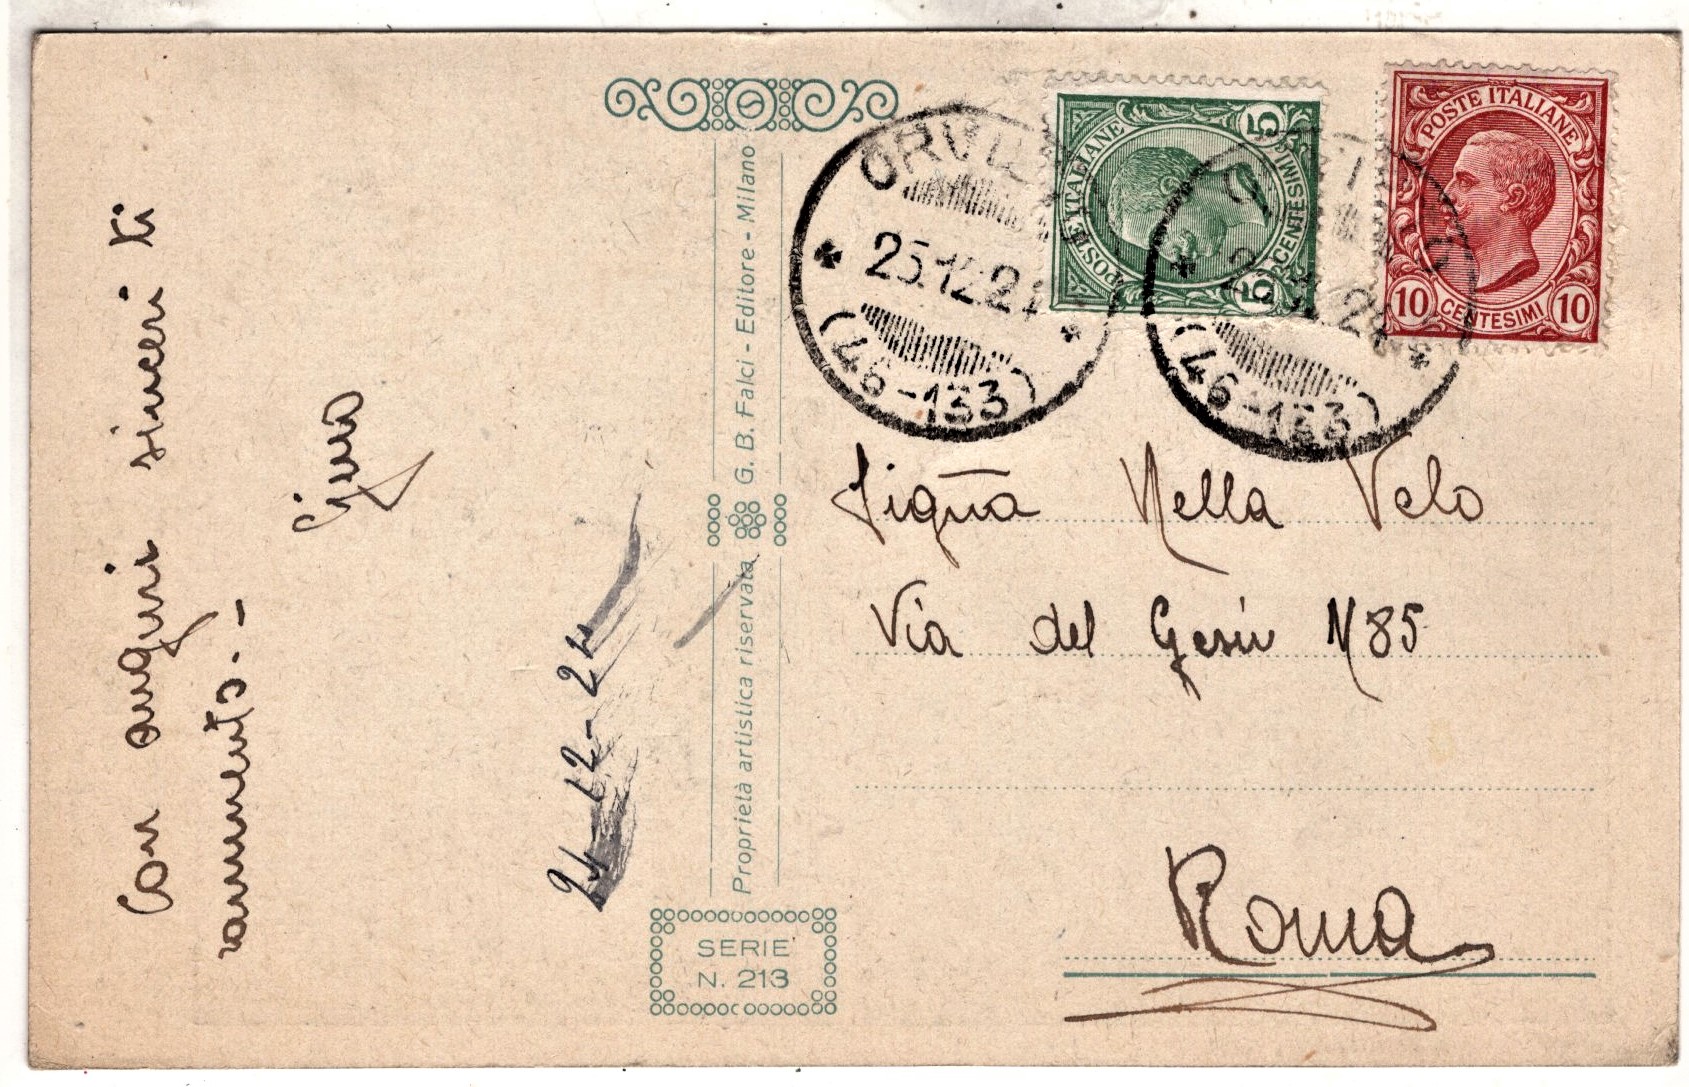 Con auguri sinceri ti
rammento. -
Gina
24-12-24
Proprietà artistica riservata
G. B. Falci - Editore - Milano
SERIE
N. 213
25.12.24
(46-133)
POSTE ITALIANE
5 CENTESIMI 5
(46-133)
POSTE ITALIANE
10 CENTESIMI 10
Sigña Nella Velo
Via del Gesù N 85
Roma